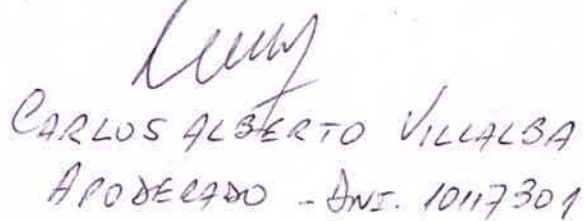 CARLOS ALBERTO VILLALBA
APODERADO - DNI. 10117301